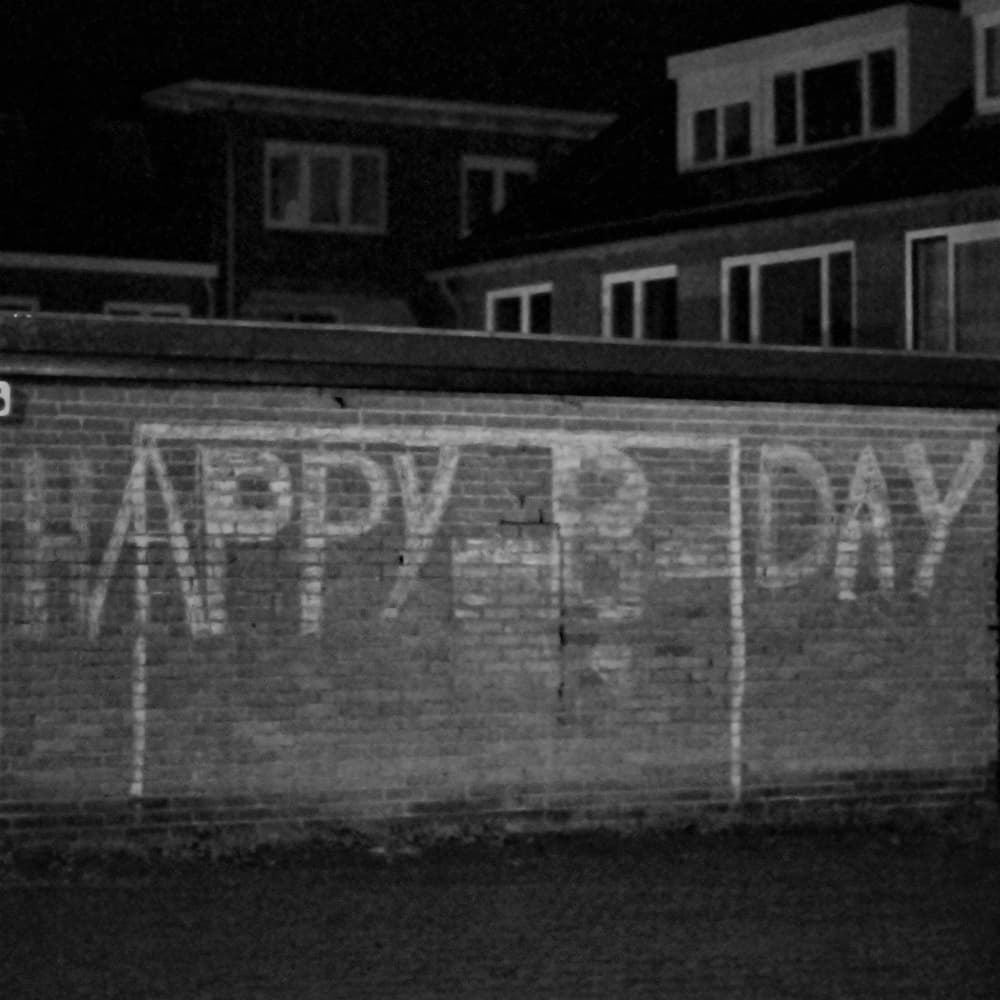 HAPPY B DAY